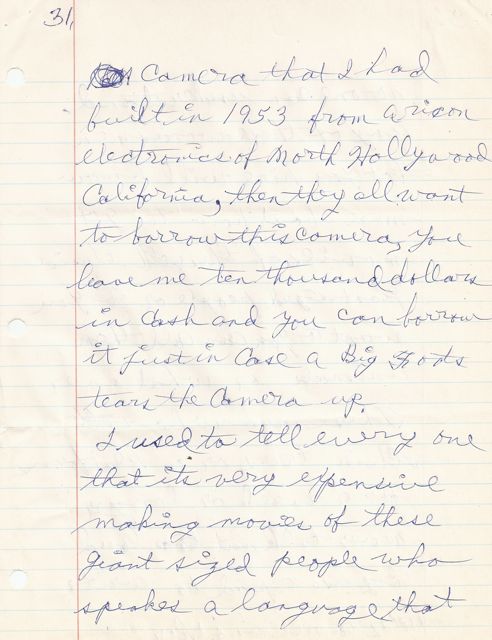 31,
Camera that I had
built in 1953 from Arison
electronics of North Hollywood
California, then they all want
to borrow this camera, you
leave me ten thousand dollars
in cash and you can borrow
it just in case a Big Foots
tears the Camera up.
I used to tell every one
that its very expensive
making movies of these
giant sized people who
speakes a language that